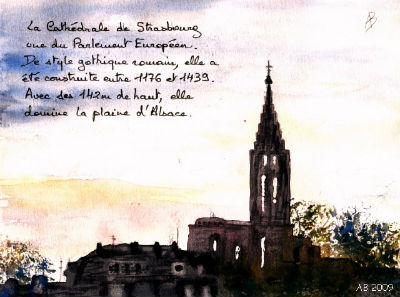 La Cathédrale de Strasbourg
vue du Parlement Européen.
De style gothique romain, elle a
été construite entre 1176 et 1439.
Avec ses 142m de haut, elle
domine la plaine d'Alsace.
AB 2009